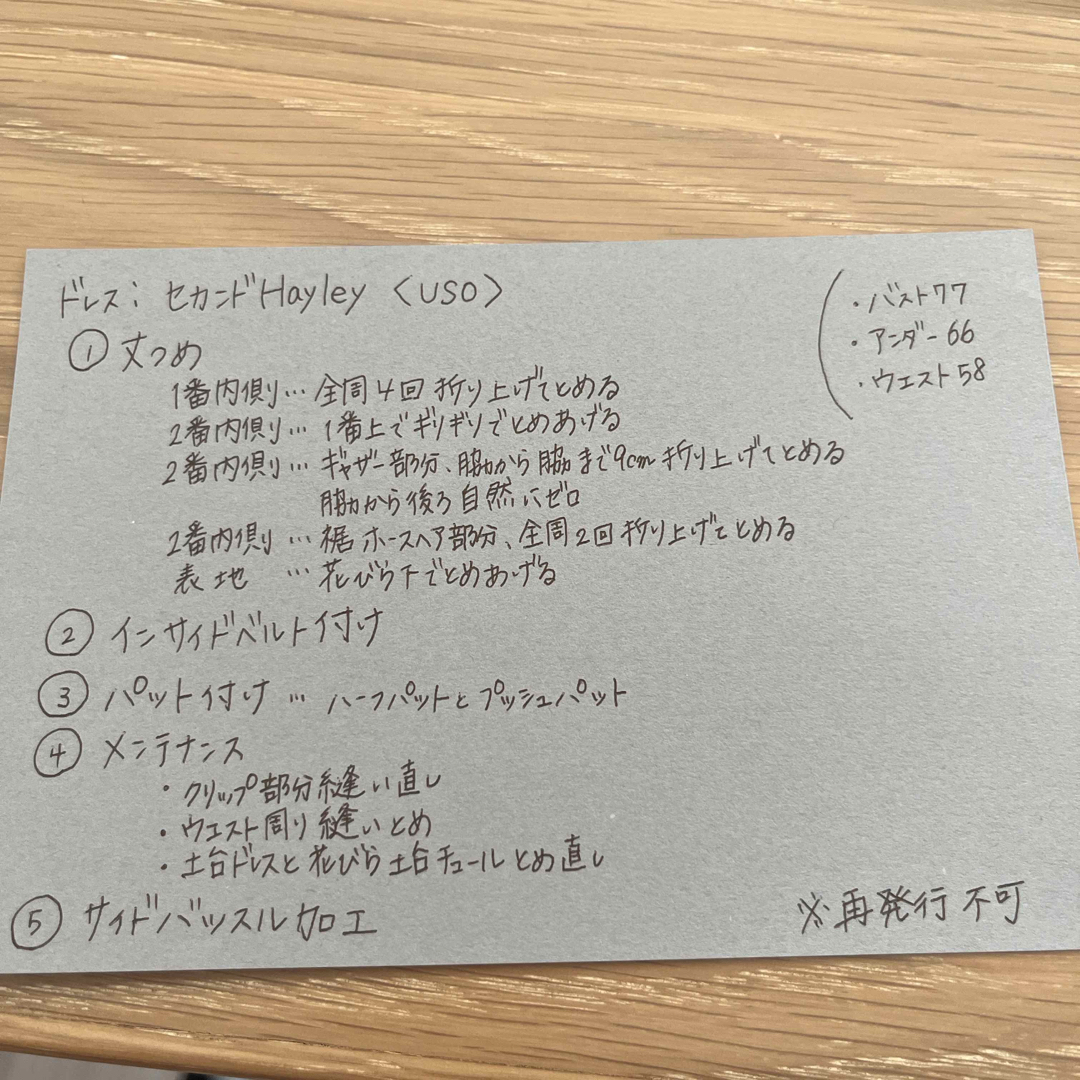 ドレス： セカンドHayley 〈USO〉
・バスト77
・アンダー66
・ウエスト58
① 丈つめ
1番内側…全周4回折り上げてとめる
2番内側…1番上でギリギリでとめあげる
2番内側…ギャザー部分、脇から脇まで9cm折り上げてとめる
脇から後ろ自然にゼロ
2番内側…裾ホースヘア部分、全周2回折り上げてとめる
表地 …花びら下でとめあげる
② インサイドベルト付け
③ パット付け…ハーフパットとプッシュパット
④ メンテナンス
・クリップ部分縫い直し
・ウエスト周り縫いとめ
・土台ドレスと花びら土台チュールとめ直し
⑤ サイドバッスル加工
※再発行不可